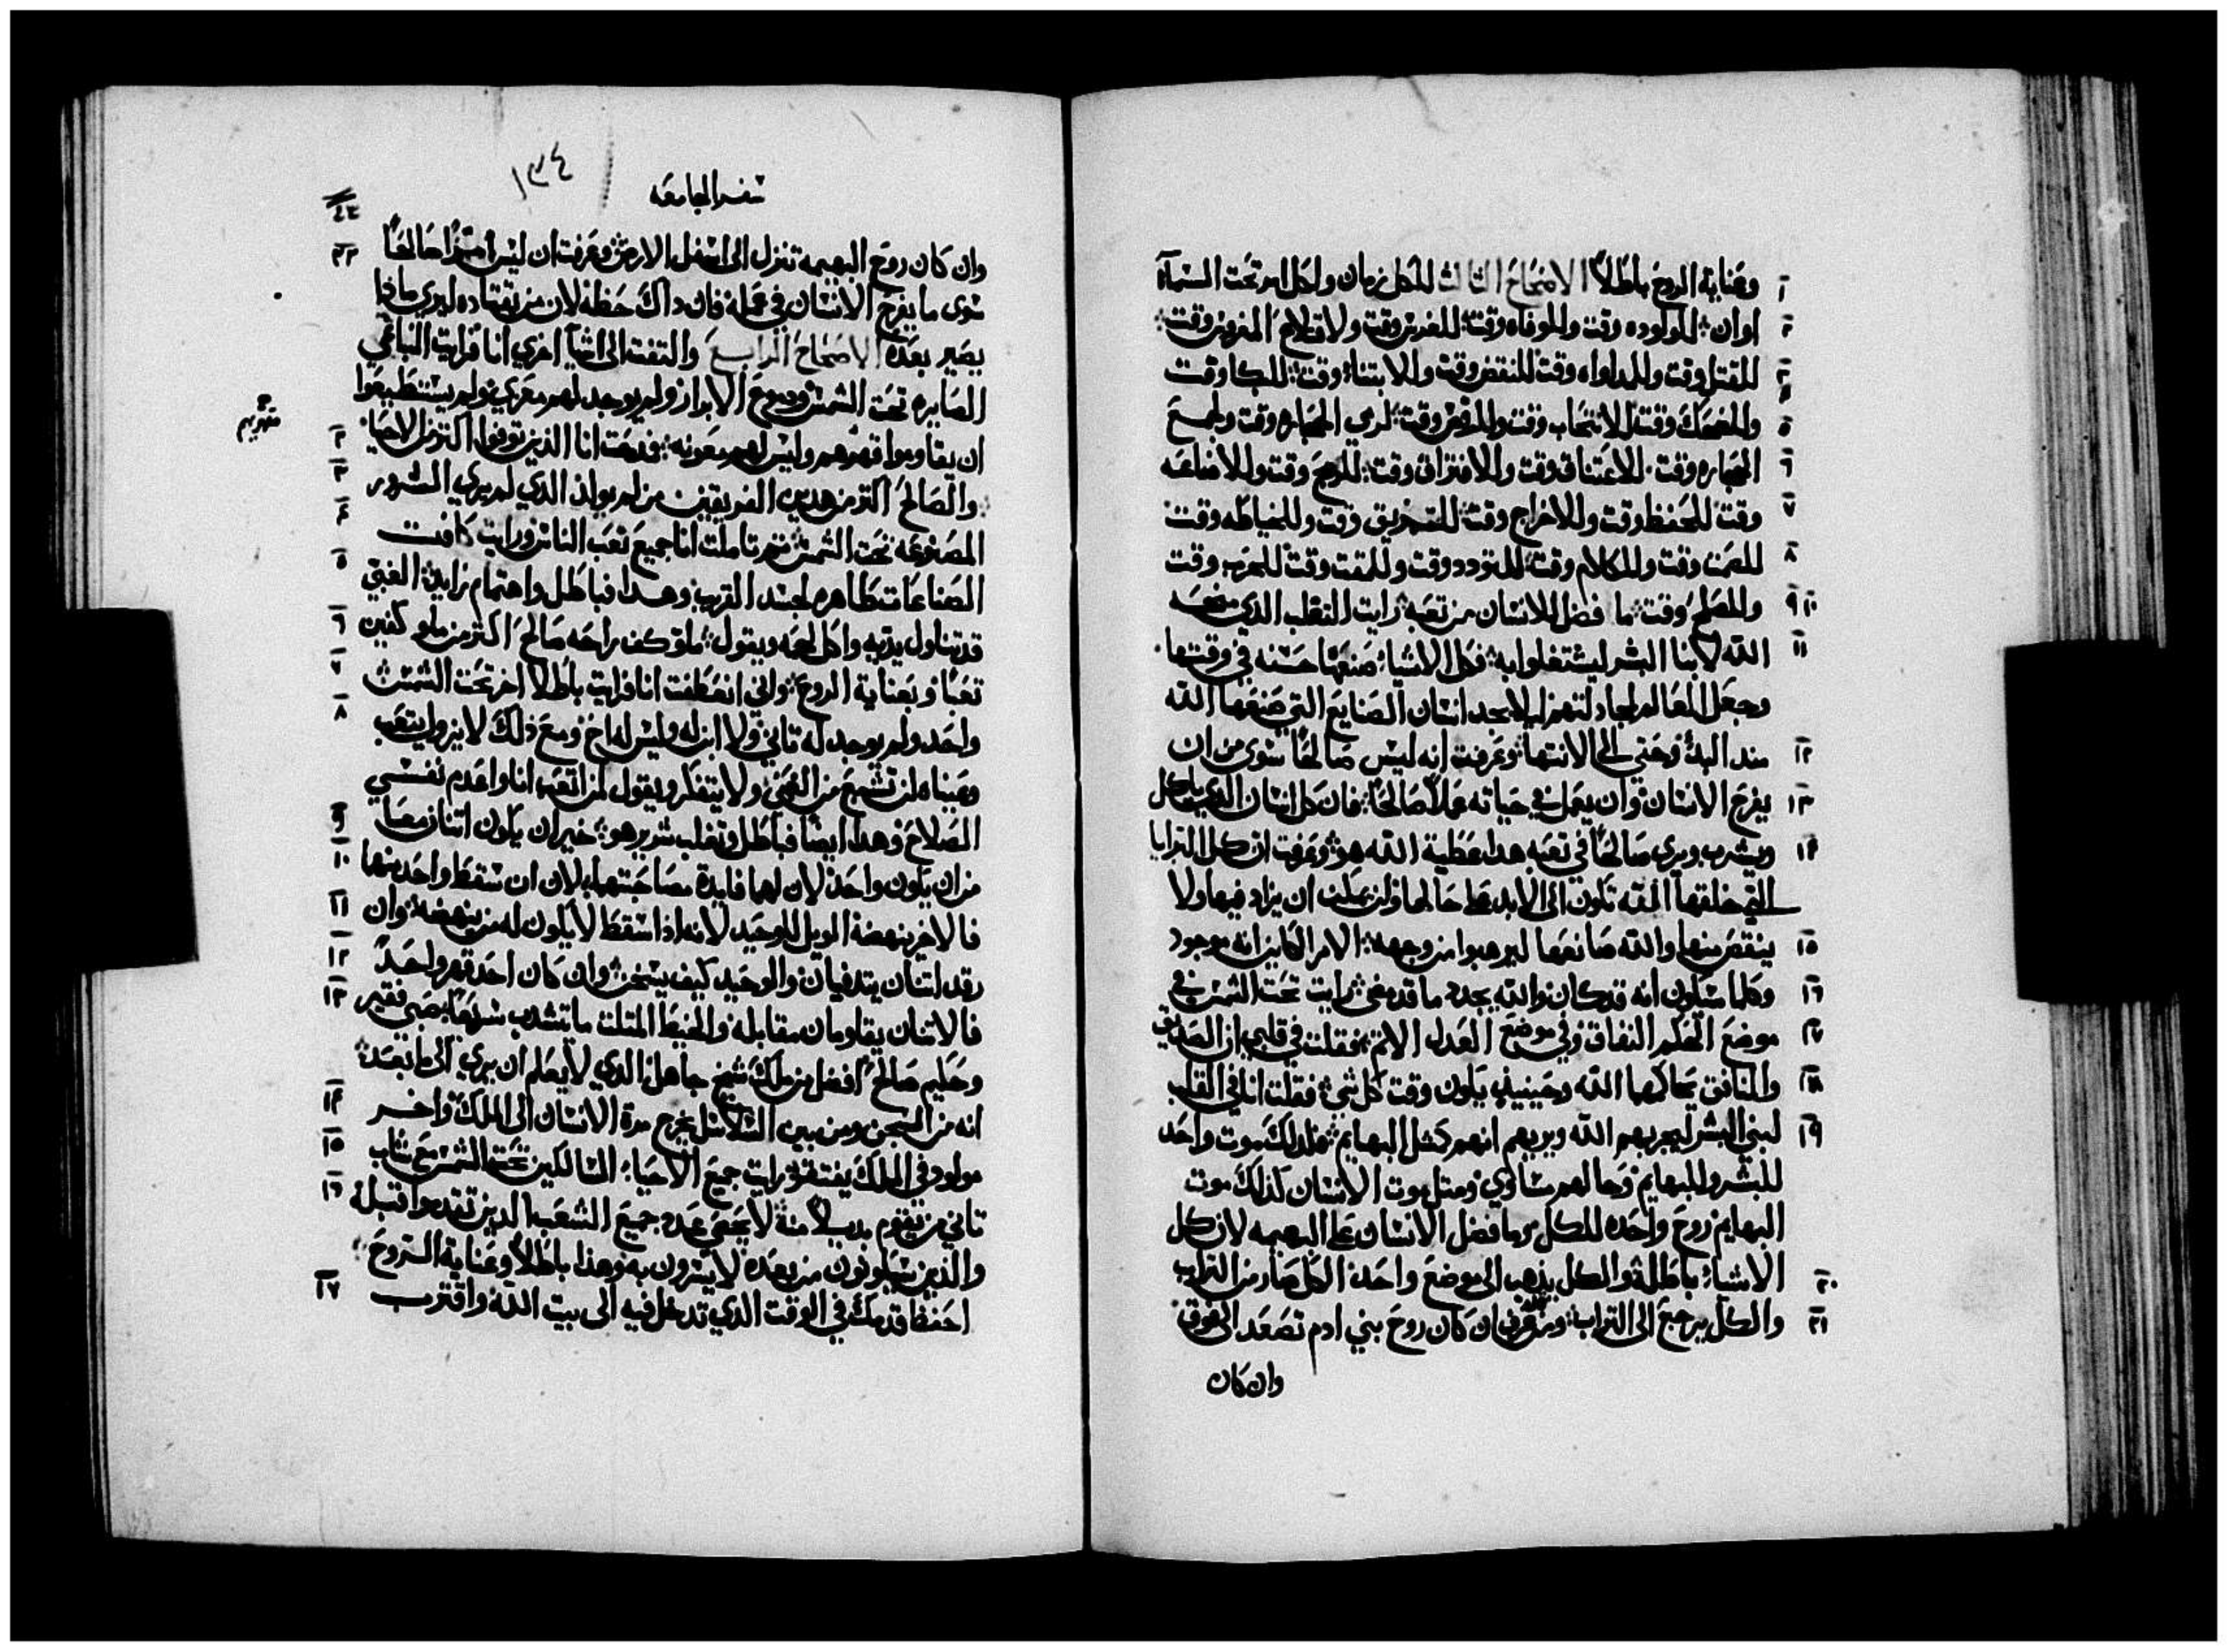 وعناية الروح باطلاً الاصحاح الثالث للكل زمان ولكل امر تحت السمآء
اوان للولوده وقت وللوفاه وقت للغرس وقت ولاقلاع المغروس وقت
للقتل وقت وللمداواه وقت للنقض وقت وللابتناء وقت للبكا وقت
وللضحك وقت للانتحاب وقت وللرقص وقت لرمي الحجاره وقت ولجمع
الحجاره وقت للاعتناق وقت وللافتراق وقت للربح وقت وللاضاعه
وقت للحفظ وقت وللاخراج وقت للتمزيق وقت وللخياطه وقت
للصمت وقت وللكلام وقت للتودد وقت وللمقت وقت للحرب وقت
وللصلح وقت ما فضل للانسان من تعبه رايت التقلب الذي منحه
الله لابنا البشر ليشتغلوا به فكل الاشيا صنعها حسنه في وقتها
وجعل العالم لجادلتهم ليلا يجد انسان الصنايع التي صنعها الله
مند البدء وحتى الى الانتها وعرفت انه ليس صالحًا سوى من ان
يفرح الانسان وان يعمل في حياته عملاً صالحًا فان كل انسان الذي ياكل
ويشرب ويرى صالحًا في تعبه هدا عطية الله هو وعرفت ان كل البرايا
التي خلقها الله تكون الى الابد على حالها ولن يمكن ان يزاد فيها ولا
ينقص منها والله صانعها ليرهبوا من وجهه الامر الكاين انه موجود
وكلما سيكون انه قد كان والله يجدد ما قد مضى رايت تحت الشمس في
موضع الحكم النفاق وفي موضع العدل الاثم فقلت في قلبي ان الصديق
والمنافق يحاكمهما الله وحينيذٍ يكون وقت كل شي فقلت انا في القلب
لبني البشر ليجربهم الله ويريهم انهم كمثل البهايم فلدلك موت واحد
للبشر وللبهايم وحالهم متساوي ومتل موت الانسان كذلك موت
البهايم وروح واحده للكل وما فضل الانسان على البهيمه لان كل
الاشياء باطلة والكل يذهب الى موضع واحد الكل صار من التراب
والكل يرجع الى التراب ومن يعرف ان كان روح بني ادم تصعد الى فوق
وان كان
سفر الجامعه
١٣٤
وان كان روح البهيمه تنزل الى اسفل الارض وعرفت ان ليس امرًا صالحًا
سوى ما يفرح الانسان في عمله فان داك حظه لان من يقتاده ليرى ماذا
يصير بعده الاصحاح الرابع والتفت الى اشيآ اخرى انا فرايت الباغي
الصايره تحت الشمس ودموع الابرار ولم يوجد لهم معزي ولم يستطيعوا
ان يقاوموا قهرهم وليس لهم معونه فمدحت انا الذين توفوا اكثر من الاحيا
والصالح اكثر من هدين الفريقين من لم يولد الدي لم يري الشرور
المصنوعه تحت الشمس ثم تاملت انا جميع تعب الناس ورايت كافت
الصناعات ظاهره لحسد القريب وهدا فباطل واهتمام زايد الغبي
قد تناول يديه واكل لحمه ويقول ملو كف براحه صالح اكثر من ملو كفين
تعبًا وبعناية الروح واني انعطفت انا فرايت باطلا اخر تحت الشمس
واحد ولم يوجد له تاني ولا ابن له وليس له اخ ومع ذلك لا يزول يتعب
وعيناه لن تشبع من الغنى ولا يتفكر ويقول لمن اتعب انا واعدم نفسي
الصلاح وهدا ايضًا فباطل وتغلب شرير هو خير ان يكون اثنان معًا
من ان يكون واحد لان لهما فايدة مصاحبتهما لان ان سقط واحد منهما
فالاخر ينهضه الويل للوحيد لانه اذا سقط لا يكون له من ينهضه وان
رقد اثنان يتدفيان والوحيد كيف يسخن وان كان احد قهر واحدً
فالاثنان يقاومان مقابله والخيط المثلث ما تنشدب سرعًا صبي فقير
وحكيم صالح افضل من ملك شيخ جاهل الذي لا يعلم ان يري الى ما بعد
انه من السجن ومن بين السلاسل يخرج مرة الانسان الى الملك واخر
مولود في الملك يفتقر رايت جميع الاحياء السالكين تحت الشمس مع شاب
تاني من يقوم بدلاً منه لا يحصى عدد جميع الشعب الدين تقدموا قبله
والذين سيكونون من بعده لا يسرون به وهذا باطلاً وعناية الروح
احفظ قدمك في الوقت الذي تدخل فيه الى بيت الله واقترب